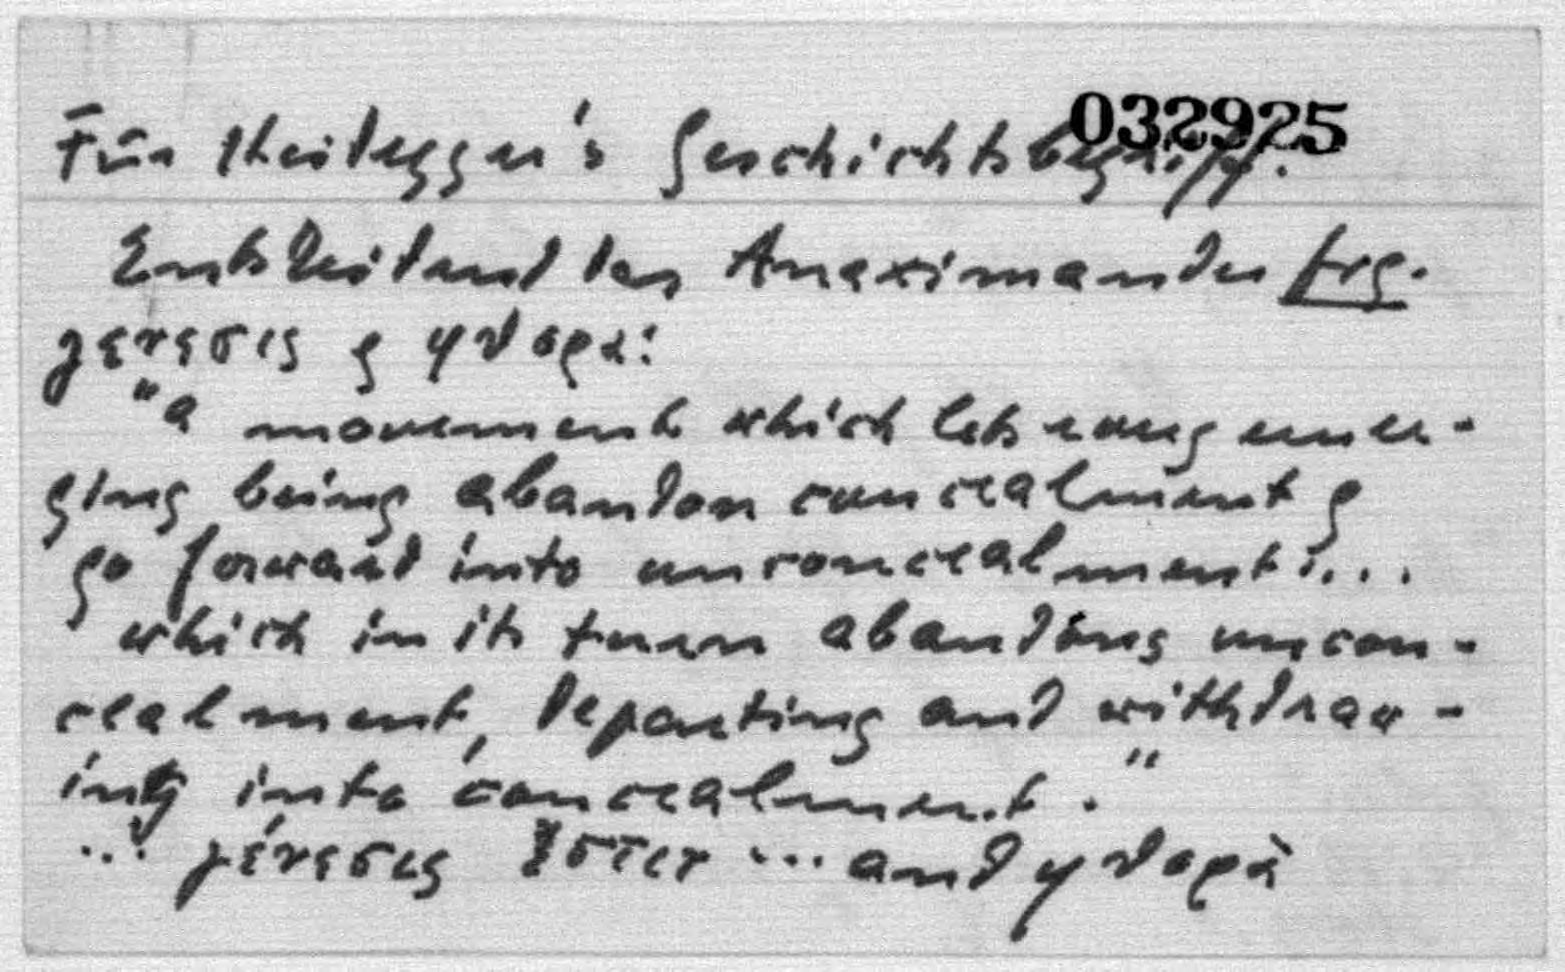 032925
Für Heidegger's Geschichtsbegriff.
Entscheidend der Anaximander Frg.
γένεσις & φθορα:
"a movement which lets every emer-
ging being abandon concealment &
go forward into unconcealment; ...
which in its turn abandons uncon-
cealment, departing and withdraw-
ing into concealment."
... γένεσις ἔστιν ... and φθορὰ